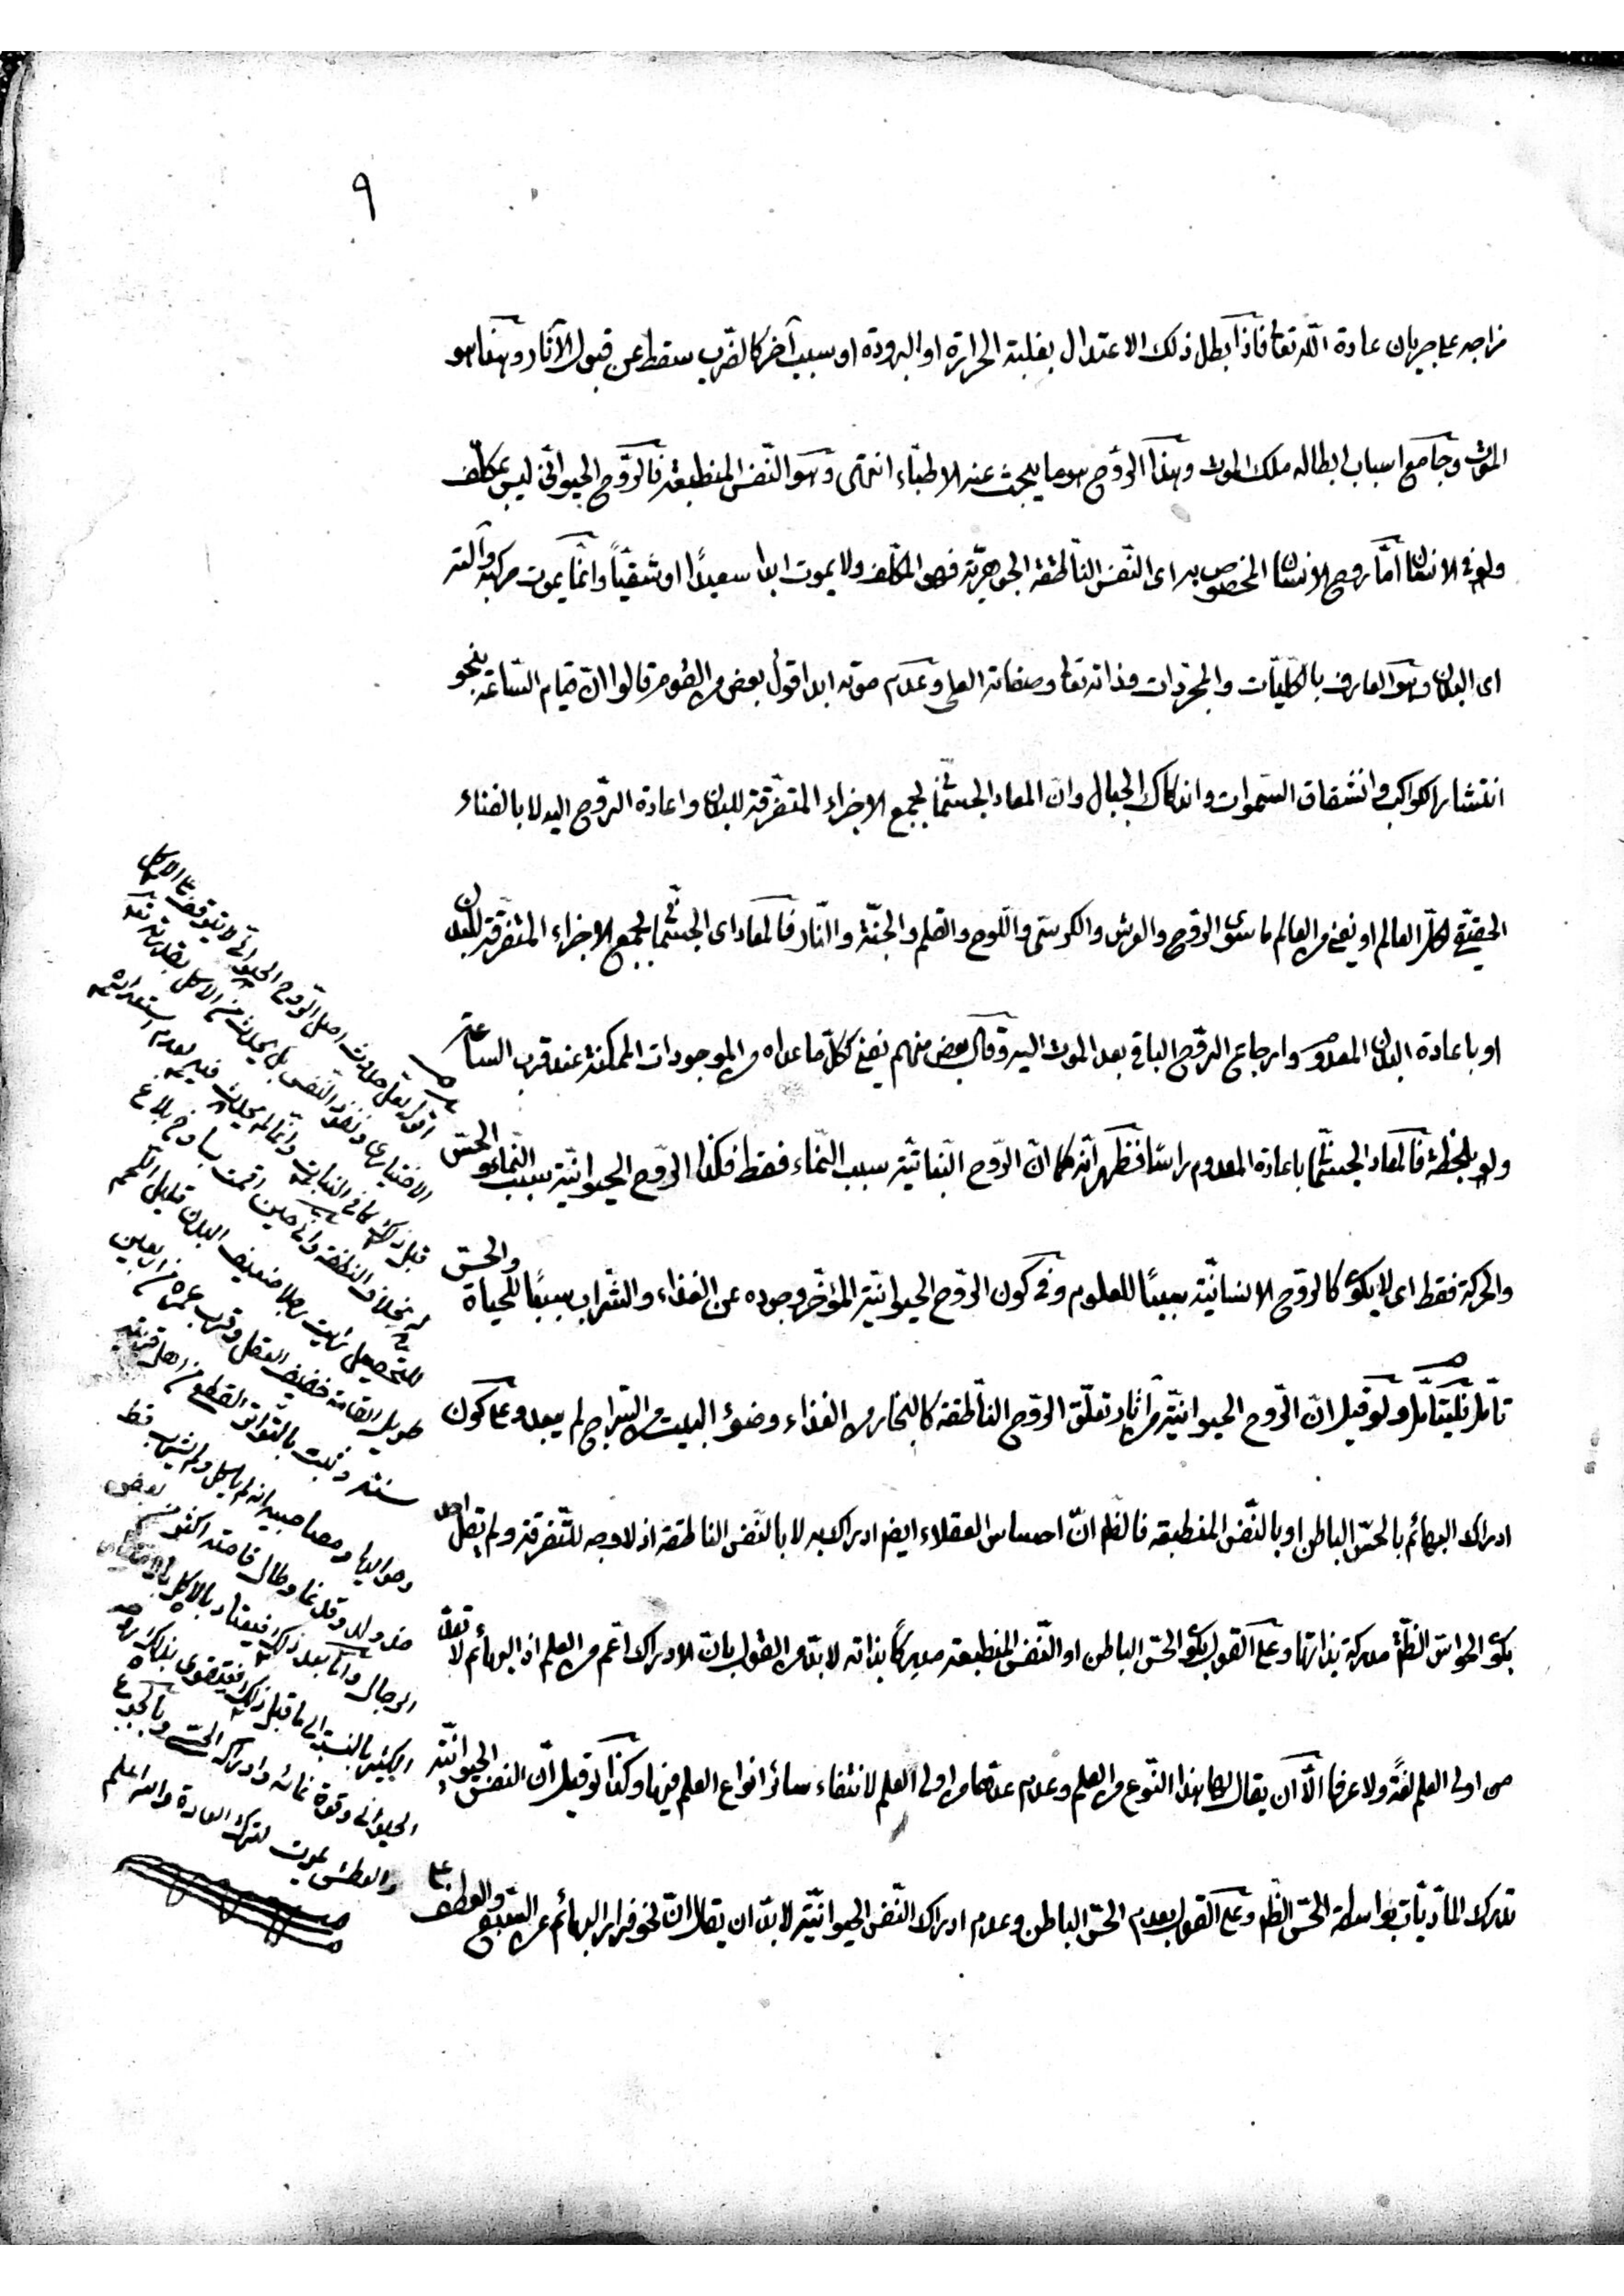 ٩
مزاجه على جريان عادة الله تعا فاذا بطل ذلك الاعتدال بغلبة الحرارة او البرودة او سبب آخر كالضرب سقط عن قبول الآثار وهذا هو
الموت وجامع اسباب ابطاله ملك الموت وهذا الروح هو ما يبحث عنه الاطباء انتهى وهو النفس المنطبعة فالروح الحيوانى ليس بمكلف
ولو فى الانسان امّا روح الانسان المخصوص به اى النفس الناطقة الجوهريّة فهو المكلف ولا يموت ابدا سعيدًا او شقيّاً وانما يموت مركبه وآلته
اى البدن وهو العارف بالكليّات والمجردات وذاته تعا وصفاته العلى وعدم موته ابدا قول بعض من القوم قالوا انّ قيام الساعة بنحو
انتشار الكواكب وانشقاق السموات واندكاك الجبال وان المعاد الجسمانى بجمع الاجزاء المتفرقة للبدن واعادة الروح اليه لا بالفناء
الحقيقى لكل العالم او يفنى من العالم ما سوى الروح والعرش والكرسى واللوح والقلم والجنّة والنّار فالمعاد اى الجسمانى بجمع الاجزاء المتفرقة للبدن
او باعادة البدن المعدوم وارجاع الروح الباقى بعد الموت اليه وقال بعض منهم يفنى كل ما عداه من الموجودات الممكنة عند قرب الساعة
ولو بلحظة فالمعاد الجسمانى باعادة المعدوم راسًا فظهر انّه كما انّ الروح النباتيّة سبب النماء فقط فكذا الروح الحيوانيّة سبب النماء والحسّ
والحركة فقط اى لا يكون كالروح الانسانيّة سببًا للعلوم وفى كون الروح الحيوانيّة المؤخّر وجوده عن الغذاء والشراب سببًا للحياة والحسّ
تأمّل فليتأمّل ولو قيل انّ الروح الحيوانيّة من آثار تعلّق الروح الناطقة كالبخار من الغذاء وضوء البيت من السّراج لم يبعد وعلى كون
ادراك البهائم بالحسّ الباطن او بالنفس المنطبعة فالظ انّ احساس العقلاء ايض ادراك به لا بالنفس الناطقة اذ لا وجه للتفرقة ولم يقل احد
بكون الحواس الظّ مدركة بذاتها وعلى القول بكون الحسّ الباطن او النفس المنطبعة مدركًا بذاته لا بدّ من القول بانّ الادراك اعمّ من العلم اذ البهائم لا تعدّ
من اولى العلم لغةً ولا عرفا الّا ان يقال لها هذا النوع من العلم وعدم عدّها من اولى العلم لانتفاء سائر انواع العلم فيها وكذا لو قيل انّ النفس الحيوانيّة
تدرك المادّيّات بواسطة الحسّ الظ وعلى القول بعدم الحسّ الباطن وعدم ادراك النفس الحيوانيّة لا بدّ ان يقال انّ نحو فرار البهائم عن السّبع والعطف على
اقول لعل حدوث اصل الروح الحيوانى لا يتوقف على الاكل
الاختيارى ونفوذ النفس بل يحدث من الاكل بقدرته تعا
قبل ذلك كما فى النبات وانما لم يحدث فيه لعدم استعداده
له بخلاف النطفة وانى حين اقمت
للتحصيل رأيت رجلا ضعيف البدن قليل اللحم
طويل القامة خفيف العقل وقرب عمره من اربعين
سنة وثبت بالتواتر القطعى من اهل قريته
وحواليها ومصاحبيه انه لم يأكل ولم يشرب قط
منذ ولد وقد نما وطال قامته اكثر من بعض
الرجال وانما بعد ذلك فيعتاد بالاكل
الكثير بالنسبة الى ما قبل ذلك فيتقوى بذلك روحه
الحيوانى وقوة نمائه وادراكه الحسّى وبالجوع
والعطش يموت لترك العادة والله اعلم